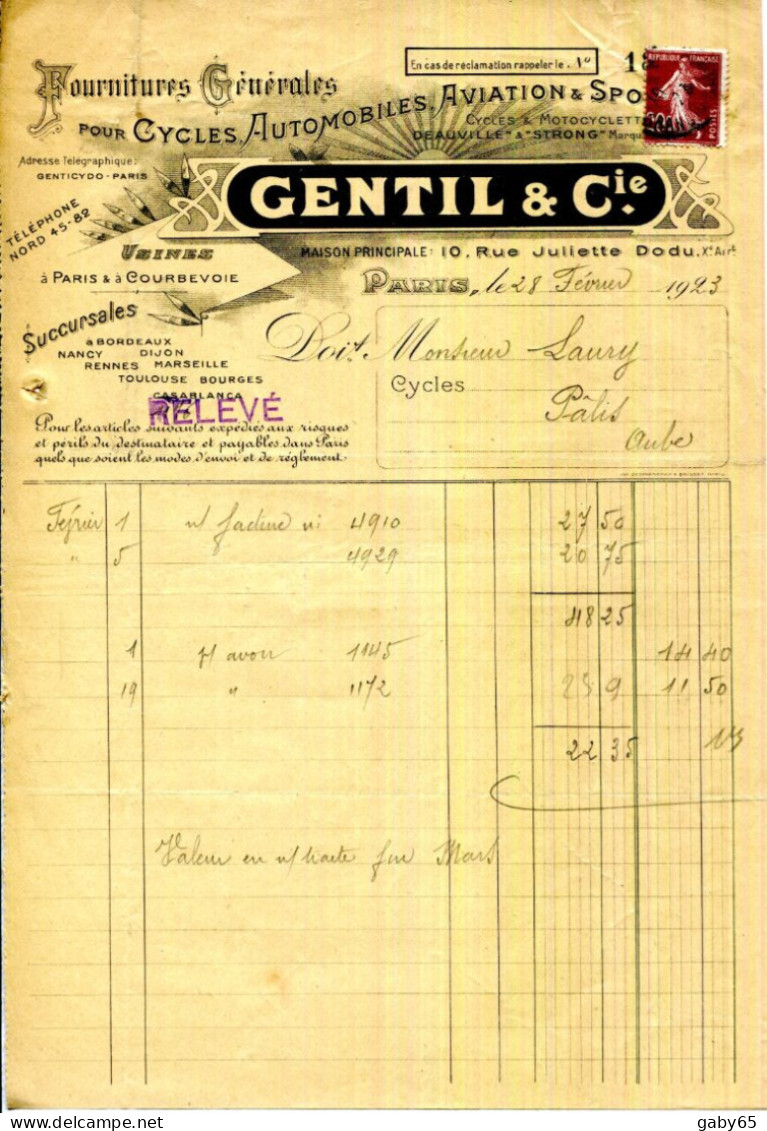 En cas de réclamation rappeler le. No
18
RÉPUBLIQUE FRANÇAISE
POSTES
Fournitures Générales
POUR CYCLES, AUTOMOBILES, AVIATION & SPO
CYCLES & MOTOCYCLETTE
DEAUVILLE" & "STRONG" Marqu
Adresse Télégraphique:
GENTICYDO - PARIS
GENTIL & Cie.
TÉLÉPHONE
NORD 45-82
USINES
à PARIS & à COURBEVOIE
MAISON PRINCIPALE: 10, Rue Juliette Dodu. Xe Arrt
PARIS, le 28 Février 1923
Succursales
à BORDEAUX
NANCY DIJON
RENNES MARSEILLE
TOULOUSE BOURGES
CASABLANCA
Doit Monsieur Laury
Cycles
Pâlis
Aube
RELEVÉ
Pour les articles suivants expédiés aux risques
et périls du destinataire et payables dans Paris
quels que soient les modes d'envoi et de règlement.
Février 1 n/ facture n: 4910 27 50
" 5 4929 20 75
48 25
1 n/ avoir 1145 14 40
19 " 1172 25 9 11 50
22 35
Valeur en n/ traite fin Mars
gaby65